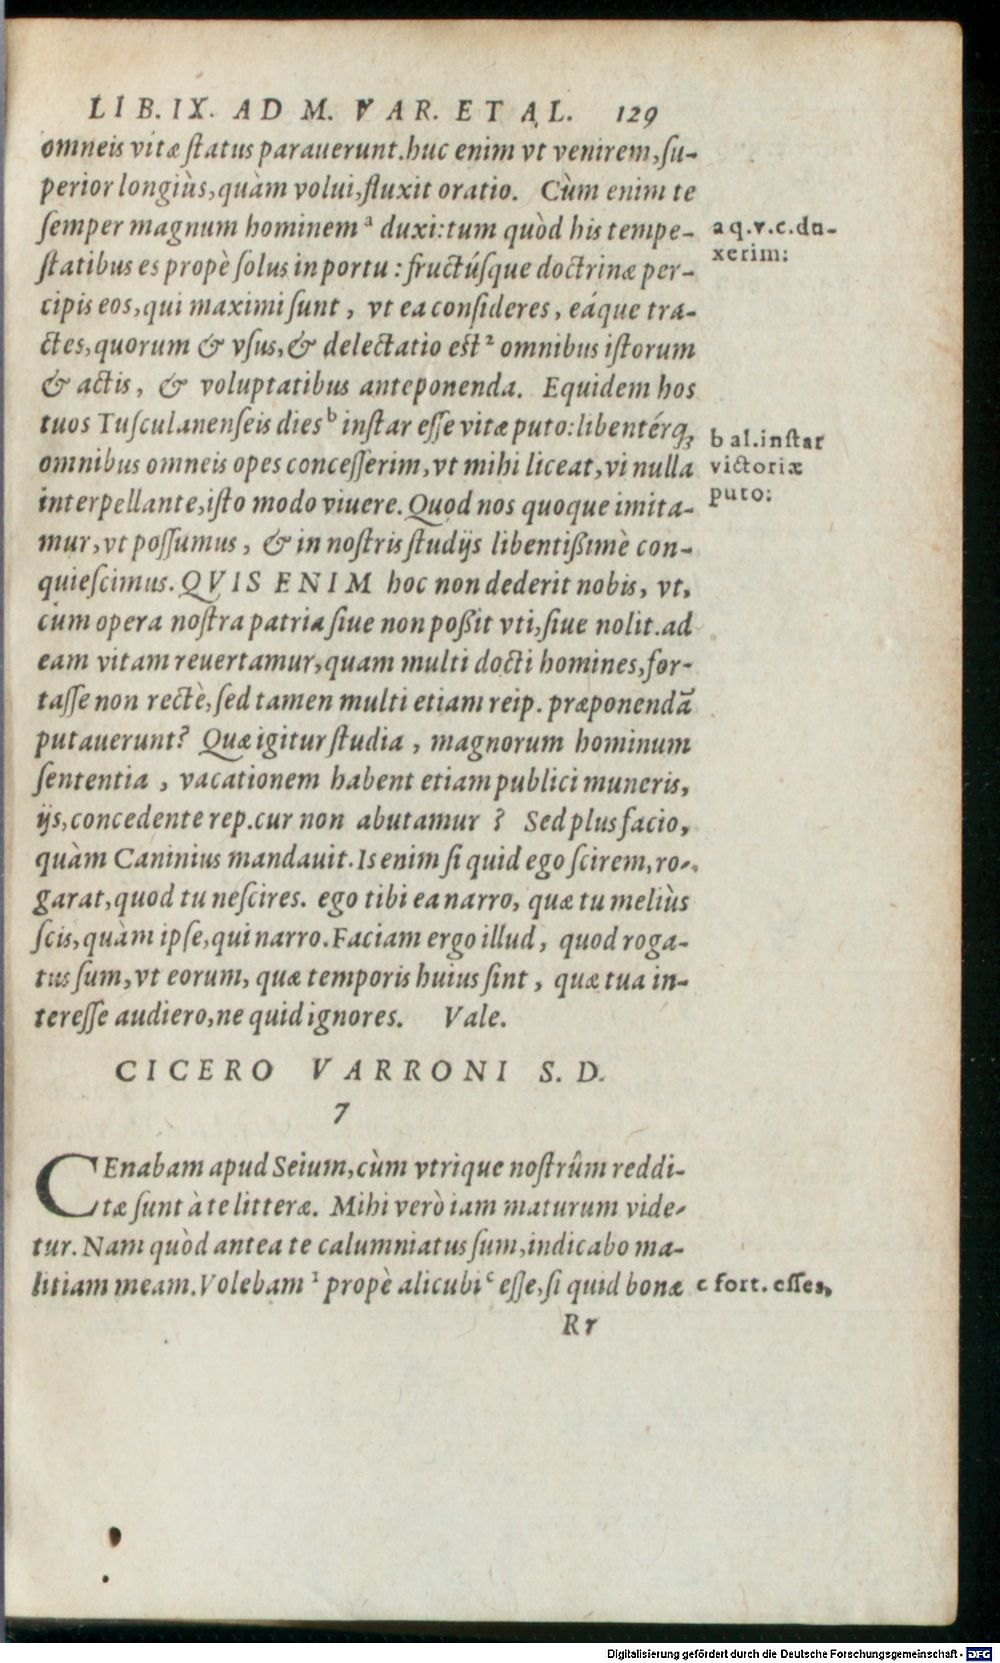 LIB. IX. AD M. VAR. ET AL. 129
omneis vitæ ſtatus parauerunt. huc enim vt venirem, ſu-
perior longiùs, quàm volui, fluxit oratio. Cùm enim te
ſemper magnum hominem ᵃ duxi: tum quòd his tempe-
a q.v.c.du-
xerim:
ſtatibus es propè ſolus in portu: fructúſque doctrinæ per-
cipis eos, qui maximi ſunt, vt ea conſideres, eáque tra-
ctes, quorum & vſus, & delectatio est ² omnibus iſtorum
& actis, & voluptatibus anteponenda. Equidem hos
tuos Tuſculanenſeis dies ᵇ inſtar eſſe vitæ puto: libentérq;
b al. inſtar
victoriæ
puto:
omnibus omneis opes conceſſerim, vt mihi liceat, vi nulla
interpellante, iſto modo viuere. Quod nos quoque imita-
mur, vt poſſumus, & in noſtris ſtudijs libentißimè con-
quieſcimus. QVIS ENIM hoc non dederit nobis, vt,
cùm opera noſtra patria ſiue non poßit vti, ſiue nolit. ad
eam vitam reuertamur, quam multi docti homines, for-
taſſe non rectè, ſed tamen multi etiam reip. præponendã
putauerunt? Quæ igitur ſtudia, magnorum hominum
ſententia, vacationem habent etiam publici muneris,
ijs, concedente rep. cur non abutamur? Sed plus facio,
quàm Caninius mandauit. Is enim ſi quid ego ſcirem, ro-
garat, quod tu neſcires. ego tibi ea narro, quæ tu meliùs
ſcis, quàm ipſe, qui narro. Faciam ergo illud, quod roga-
tus ſum, vt eorum, quæ temporis huius ſint, quæ tua in-
tereſſe audiero, ne quid ignores. Vale.
CICERO VARRONI S. D.
7
CEnabam apud Seium, cùm vtrique noſtrûm reddi-
tæ ſunt à te litteræ. Mihi verò iam maturum vide-
tur. Nam quòd antea te calumniatus ſum, indicabo ma-
litiam meam. Volebam ¹ propè alicubi ᶜ eſſe, ſi quid bonæ
c fort. eſſes,
Rr
Digitalisierung gefördert durch die Deutsche Forschungsgemeinschaft - DFG